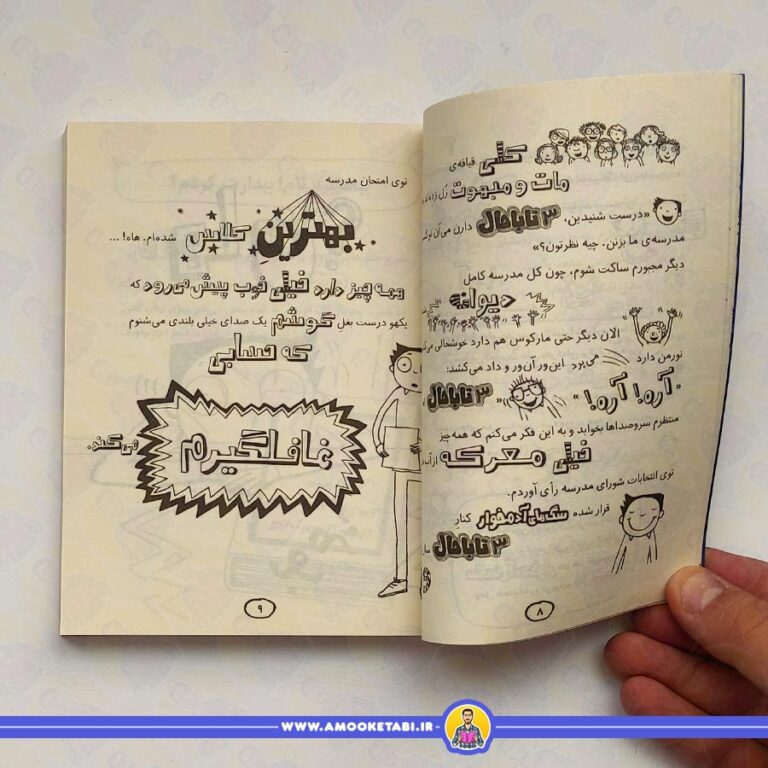 کلی قیافه‌ی
مات و مبهوت زُل
«درست شنیدین، ۳ تا باحال دارن می‌آن تو
مدرسه‌ی ما بزنن. چیه نظرتون؟»
دیگر مجبورم ساکت شوم، چون کل مدرسه کامل
دیوانه
الان دیگر حتی مارکوس هم دارد خوشحالی
نورمن دارد می‌پرد این‌ور آن‌ور و داد می‌کشد:
«آره! آره!» «۳ تا باحال
منتظرم سروصداها بخوابد و به این فکر می‌کنم که همه‌چیز
خیلی معرکه از آب
توی انتخابات شورای مدرسه رأی آوردم.
قرار شده سگ‌های آدمخوار کنارِ
۳ تا باحال
۸
توی امتحان مدرسه
بهترین کلاس شده‌ام. هاه! ...
همه چیز دارد خیلی خوب پیش می‌رود که
یکهو درست بغل گوشم یک صدای خیلی بلندی می‌شنوم
که حسابی
غافلگیرم می‌کند.
۹
WWW.AMOOKETABI.IR